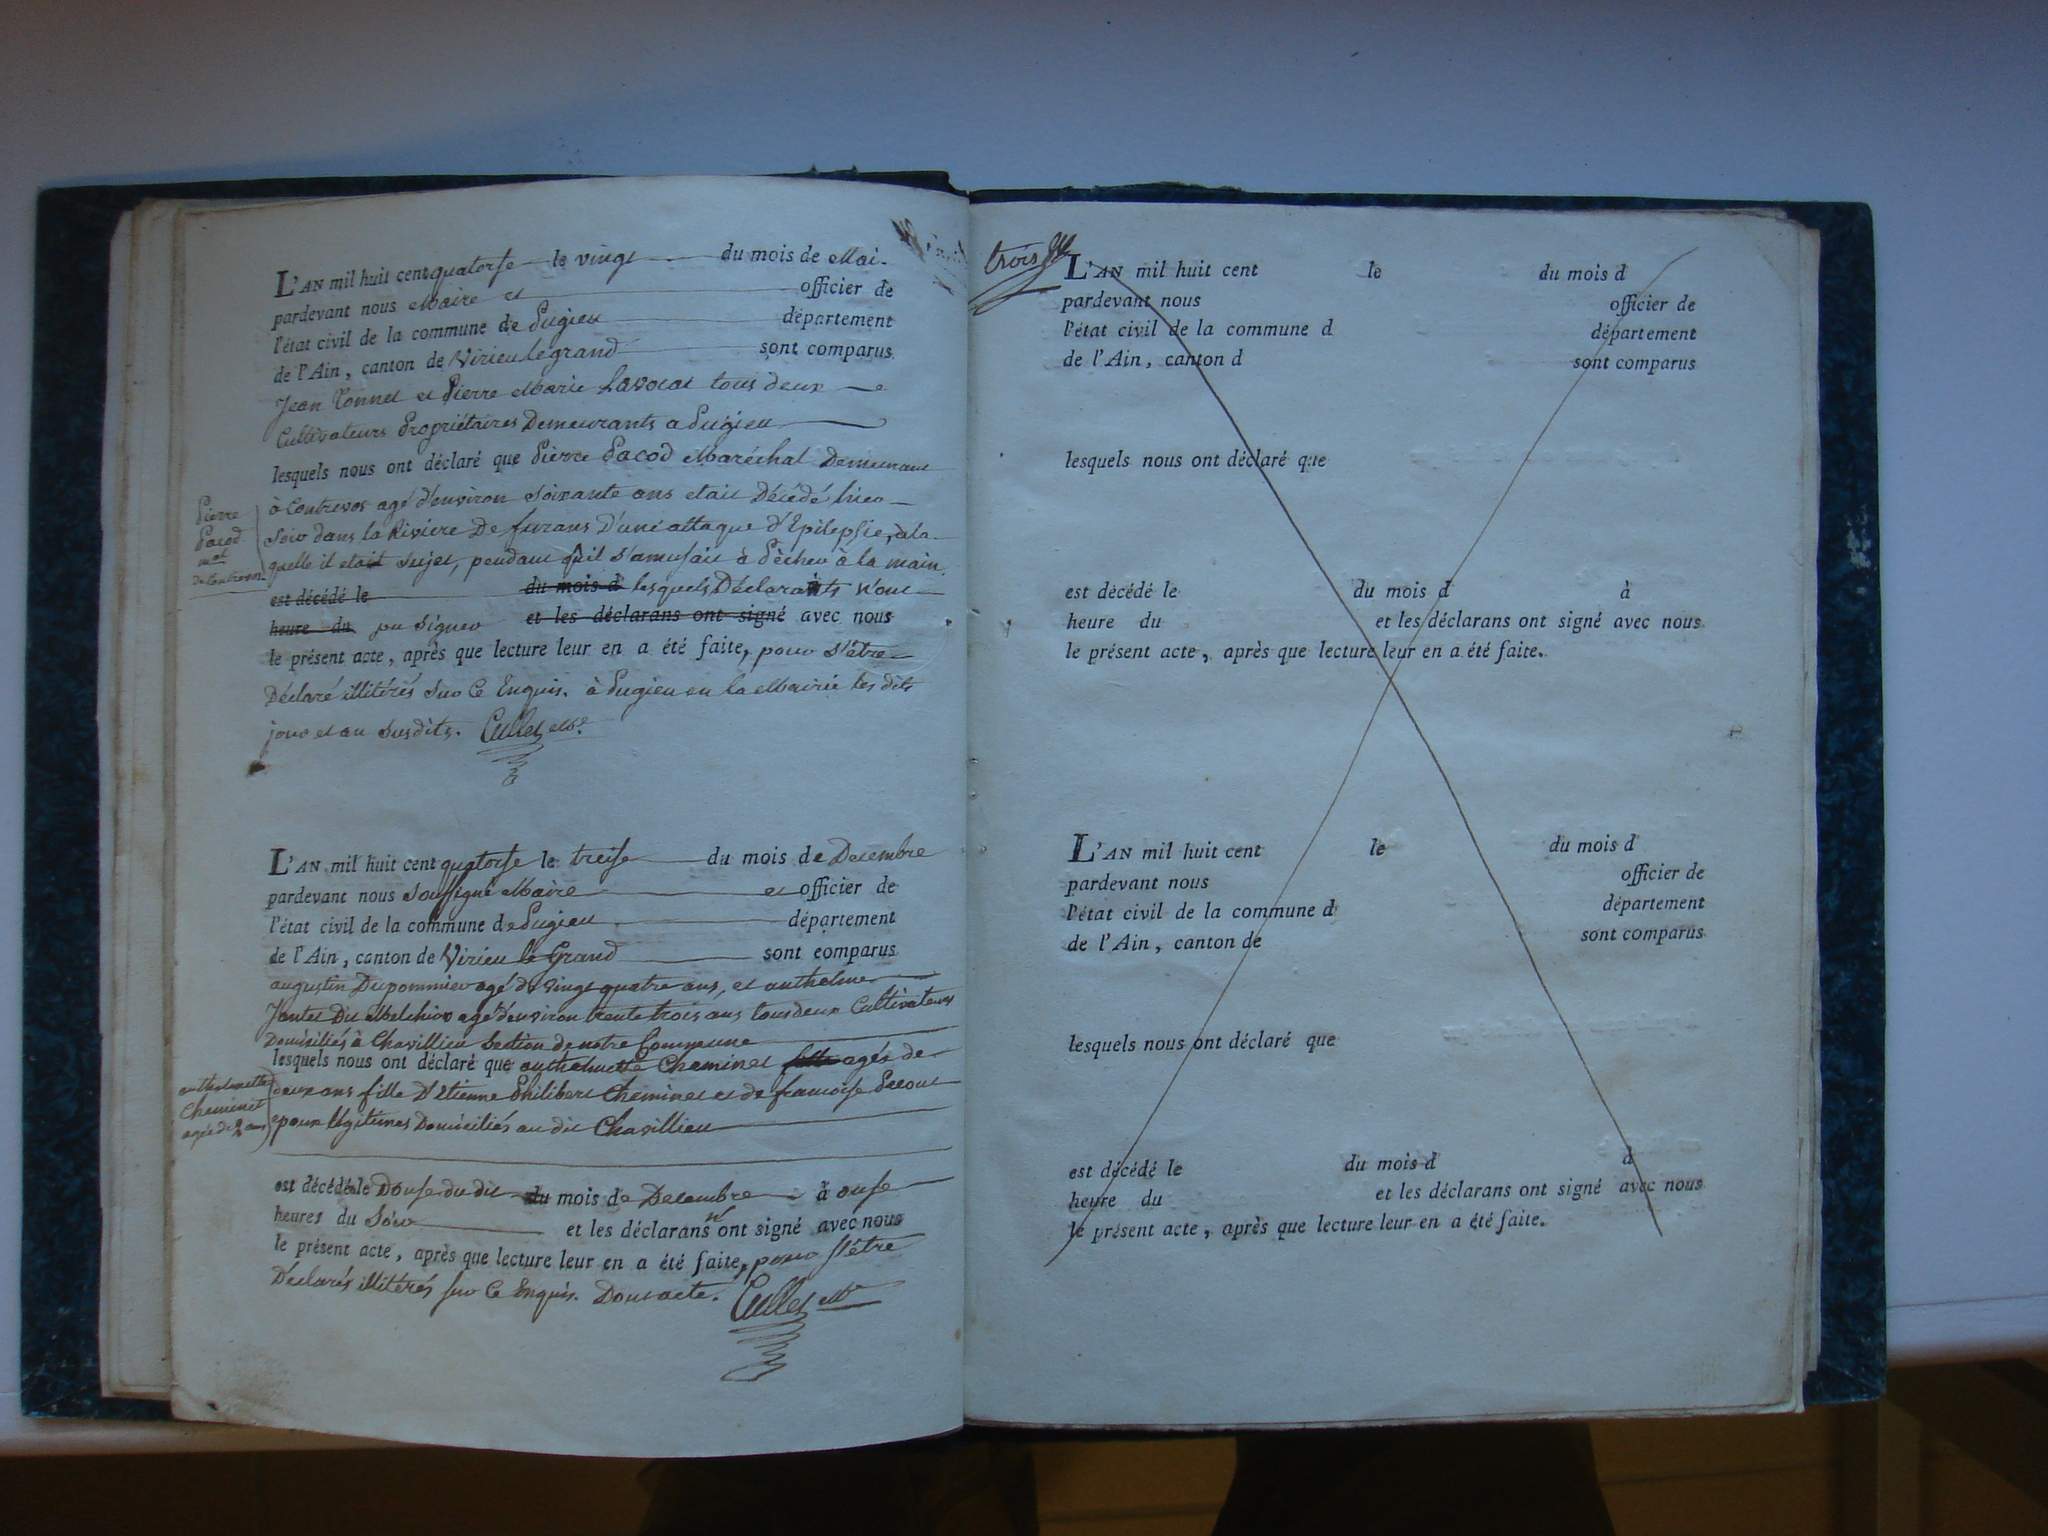 L'AN mil huit cent quatorse le vingt du mois de Mai.
pardevant nous Maire et officier de
l'état civil de la commune de Pugieu département
de l'Ain, canton de Virieu le grand sont comparus
Jean Connet et Pierre Marie Lavocat tous deux
Cultivateurs Propriétaires Demeurants a Pugieu
lesquels nous ont déclaré que Pierre Pacod Maréchal Demeurant
à Contrevos agé d'environ soixante ans etait Décédé hier
Soir dans la Riviere De furans D'une attaque d'Epilepsie, à la
quelle il etait Sujet, pendant qu'il s'amusait à Pècher à la main.
est décédé le du mois d lesquels Déclarants n'ont
heure du pu Signer et les déclarans ont signé avec nous
le présent acte, après que lecture leur en a été faite, pour s'être
Déclaré illitérés Sur Ce Enquis. à Pugieu en la Mairie les dits
jour et an Susdits. Cullet Mre
Pierre
Pacod
mal
De Contrevos
L'AN mil huit cent quatorse le treise du mois de Decembre
pardevant nous Soussigné Maire et officier de
l'état civil de la commune de Pugieu département
de l'Ain, canton de Virieu le Grand sont comparus
augustin Dupommier agé de vingt quatre ans, et anthelme
Jantet Dit Melchior agé d'environ trente trois ans tous deux Cultivateurs
Domiciliés à Chavillieu Section de notre Commune
lesquels nous ont déclaré que anthelmette Cheminet fille agés de
deux ans fille D'etienne Philibert Cheminet et de francoise Pecout
epoux légitimes Domiciliés au dit Chavillieu
anthelmette
Cheminet
agée de 2 ans
est décédé le Douse du dit du mois de Decembre à onse
heures du Soir et les déclarans n'ont signé avec nous
le présent acte, après que lecture leur en a été faite, pour s'être
Déclarés illitérés sur Ce Enquis. Dont acte. Cullet Mre
trois
L'AN mil huit cent le du mois d
pardevant nous officier de
l'état civil de la commune d département
de l'Ain, canton d sont comparus
lesquels nous ont déclaré que
est décédé le du mois d à
heure du et les déclarans ont signé avec nous
le présent acte, après que lecture leur en a été faite.
L'AN mil huit cent le du mois d
pardevant nous officier de
l'état civil de la commune d département
de l'Ain, canton de sont comparus
lesquels nous ont déclaré que
est décédé le du mois d d
heure du et les déclarans ont signé avec nous
le présent acte, après que lecture leur en a été faite.